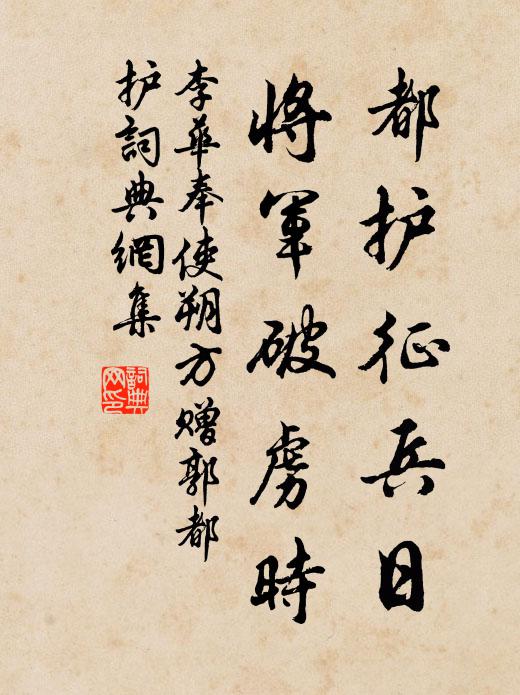 都护征兵日
將軍破虜時
李華奉使朔方赠郭都
护詞典網集
詞典
网印